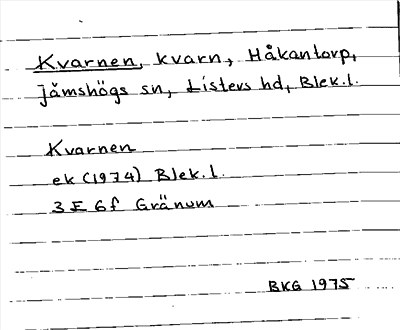 Kvarnen, kvarn, Håkantorp,
Jämshögs sn, Listers hd, Blek.l.
Kvarnen
ek (1974) Blek.l.
3 E 6f Gränum
BKG 1975